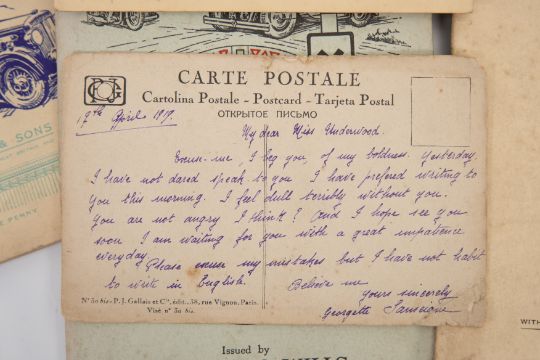 & SONS
E PENNY
CARTE POSTALE
Cartolina Postale - Postcard - Tarjeta Postal
ОТКРЫТОЕ ПИСЬМО
17th April 1919.
My dear Miss Underwood.
Excuse-me, I beg you, of my boldness. Yesterday,
I have not dared speak to you I have prefered writing to
you this morning. I feel dull terribly without you.
You are not angry I think? And I hope see you
soon I am waiting for you with a great impatience
everyday.
Please excuse my mistakes but I have not habit
to write in English.
Believe me
yours sincerely
Georgette
N° 30 bis - P. J. Gallais et Cie, édit., 38, rue Vignon, Paris.
Visé n° 30 bis.
Issued by
WITH